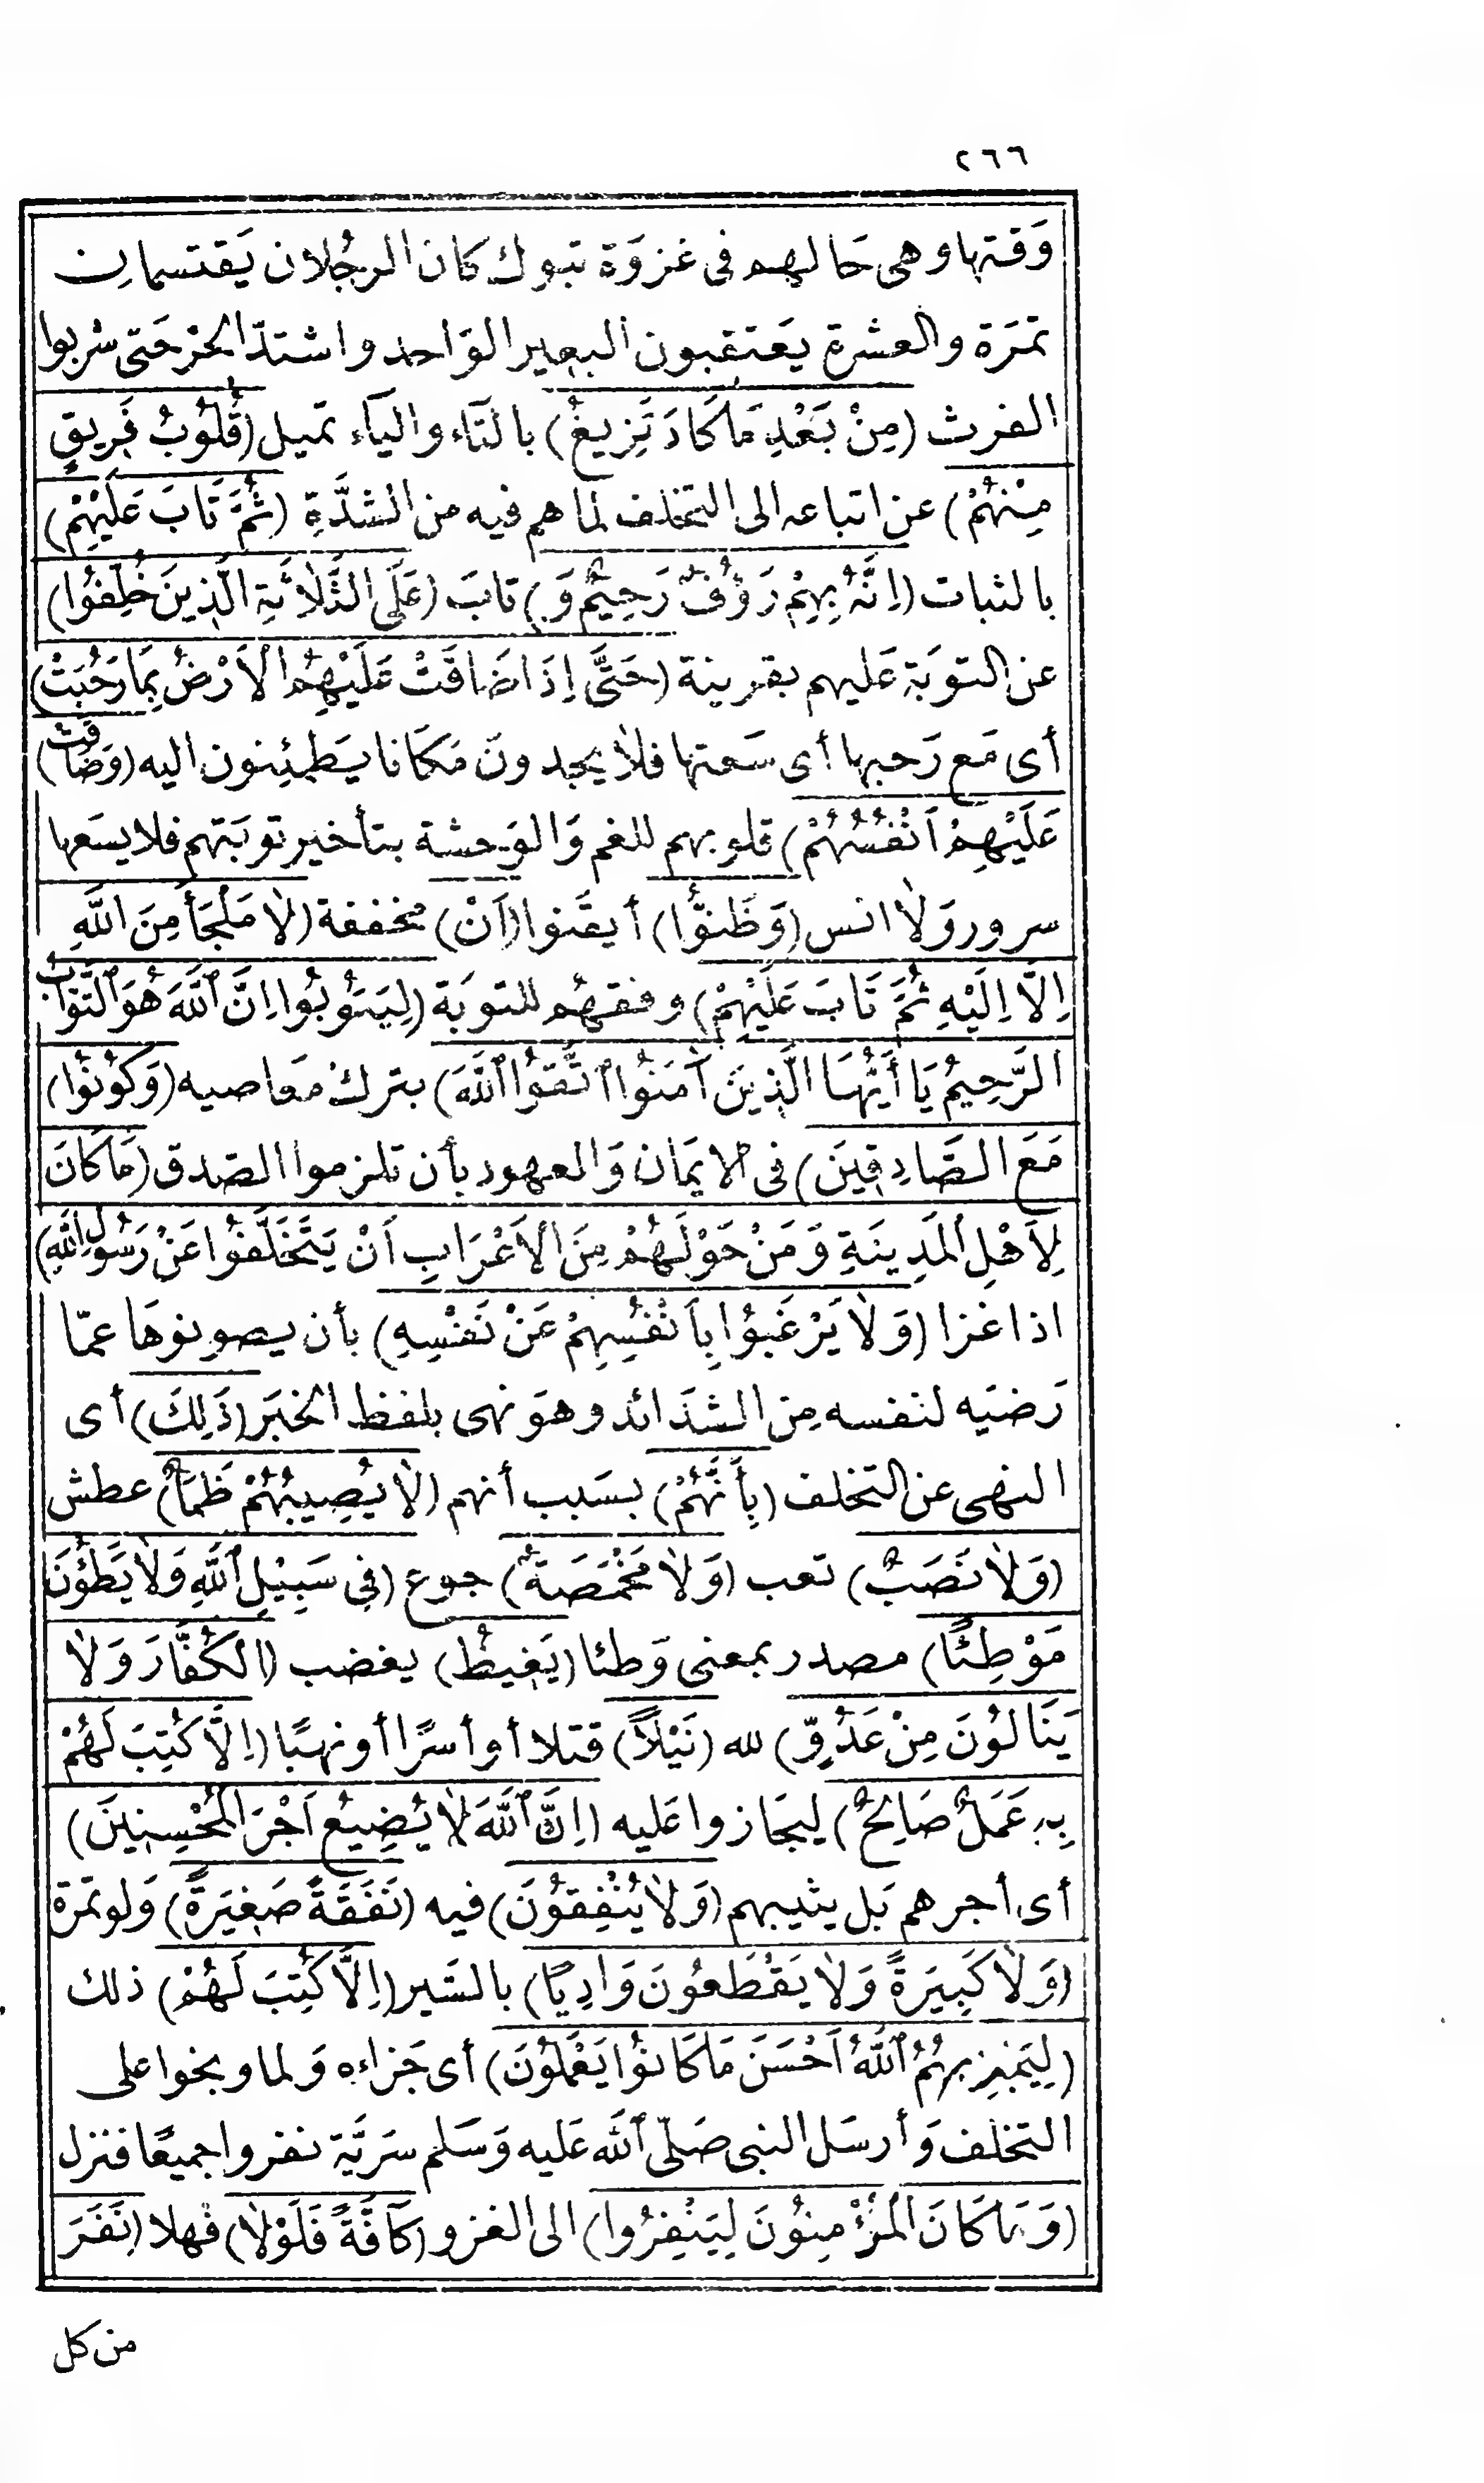 ٢٦٦
وَقتها وهى حَالهم فى غزوَة تبوك كان الرجُلان يَقتسمان
تمرَة والعشرة يعَتقبون البعير الوَاحد واشتدّ الحرّ حَتى شربوا
الفرث (مِنْ بَعْدِ مَا كَادَ تَزِيغُ) بالتَاء واليَاء تميل (قُلُوبُ فَرِيقٍ
مِنْهُمْ) عن اتباعه الى التخلف لما هم فيه من الشدَّةِ (ثُمَّ تَابَ عَلَيْهِمْ)
بالثبات (اِنَّهُ بِهِمْ رَؤُفٌ رَحِيمٌ وَ) تابَ (عَلَى الثَّلَاثَةِ الَّذِينَ خُلِّفُوا)
عن التوَبَة عَليهم بقرينة (حَتَّى اِذَا ضَاقَتْ عَلَيْهِمُ الْاَرْضُ بِمَا رَحُبَتْ)
أى مَع رَحبها أى سَعتها فلا يجدون مَكَانا يَطمئِنون اليه (وَضَاقَتْ)
عَلَيْهِمْ اَنْفُسُهُمْ) قلوبهم للغم وَالوَحشة بتأخير توبَتهم فلا يسَعها
سرور وَلا انس (وَظَنُّوا) أيقَنوا (اَنْ) مخففة (لَا مَلْجَأَ مِنَ اللَّهِ
اِلَّا اِلَيْهِ ثُمَّ تَابَ عَلَيْهِمْ) وفقهُم للتوبَة (لِيَتُوبُوا اِنَّ اللَّهَ هُوَ التَّوَّابُ
الرَّحِيمُ يَا أَيُّهَا الَّذِينَ آمَنُوا اتَّقُوا اللَّهَ) بترك مَعاصيه (وَكُونُوا)
مَعَ الصَّادِقِينَ) فى الايمَان وَالعهود بأن تلزموا الصّدق (مَا كَانَ
لِاَهْلِ الْمَدِينَةِ وَمَنْ حَوْلَهُمْ مِنَ الْاَعْرَابِ اَنْ يَتَخَلَّفُوا عَنْ رَسُولِ اللَّهِ)
اذا غزا (وَلَا يَرْغَبُوا بِاَنْفُسِهِمْ عَنْ نَفْسِهِ) بأن يصونوهَا عمّا
رَضيَه لنفسه مِن الشدَائد وهوَ نهى بلفظ الخبَر (ذَلِكَ) أى
النهى عن التخلف (بِأَنَّهُمْ) بسَبب أنهم (لَا يُصِيبُهُمْ ظَمَأٌ) عطش
(وَلَا نَصَبٌ) تعب (وَلَا مَخْمَصَةٌ) جوع (فِى سَبِيْلِ اللَّهِ وَلَا يَطَؤُنَ
مَوْطِئًا) مصدر بمعنى وَطئا (يَغِيظُ) يغضب (الْكُفَّارَ وَلَا
يَنَالُونَ مِنْ عَدُوٍّ) لله (نَيْلاً) قتلا أو أسرًا أو نهبًا (اِلَّا كُتِبَ لَهُمْ
بِهِ عَمَلٌ صَالِحٌ) ليجَازوا عَليه (اِنَّ اللَّهَ لَا يُضِيعُ اَجْرَ الْمُحْسِنِينَ)
أى أجرهم بَل يثيبهم (وَلَا يُنْفِقُونَ) فيه (نَفَقَةً صَغِيَرَةً) وَلو تمَرة
(وَلَا كَبِيَرَةً وَلَا يَقْطَعُونَ وَادِيًا) بالسَير (اِلَّا كُتِبَ لَهُمْ) ذلك
(لِيَجْزِيَهُمُ اللَّهُ اَحْسَنَ مَا كَانُوا يَعْمَلُونَ) أى جَزاءه وَلما وبخوا على
التخلف وَأرسَل النبى صَلّى اللَّه عَليه وَسَلم سرَيَّة نفروا جميعًا فنزل
(وَمَا كَانَ الْمُؤْمِنُونَ لِيَنْفِرُوا) الى الغزو (كَآفَّةً فَلَوْلَا) فهلا (نَفَرَ
من كل